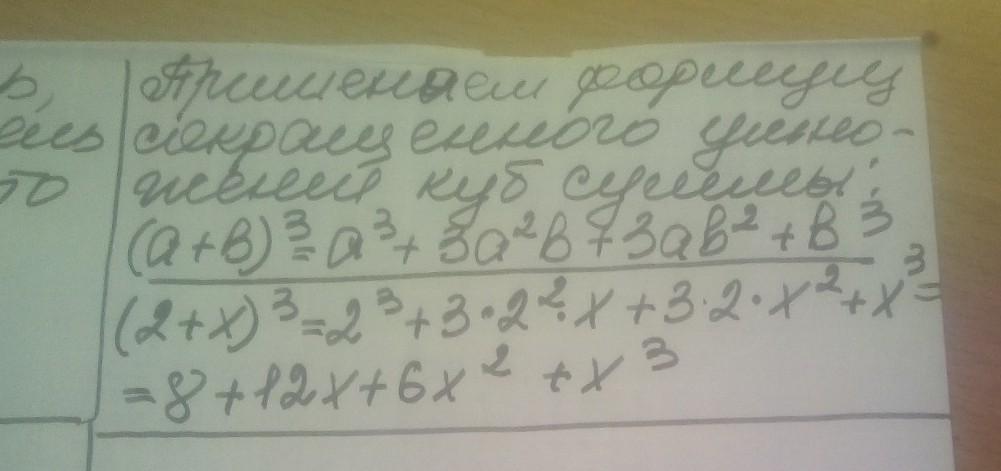 ь, Применяем формулу
сокращенного умно-
то жений куб суммы:
(a+b)³=a³+3a²b+3ab²+b³
(2+x)³=2³+3·2²·x+3·2·x²+x³=
=8+12x+6x²+x³